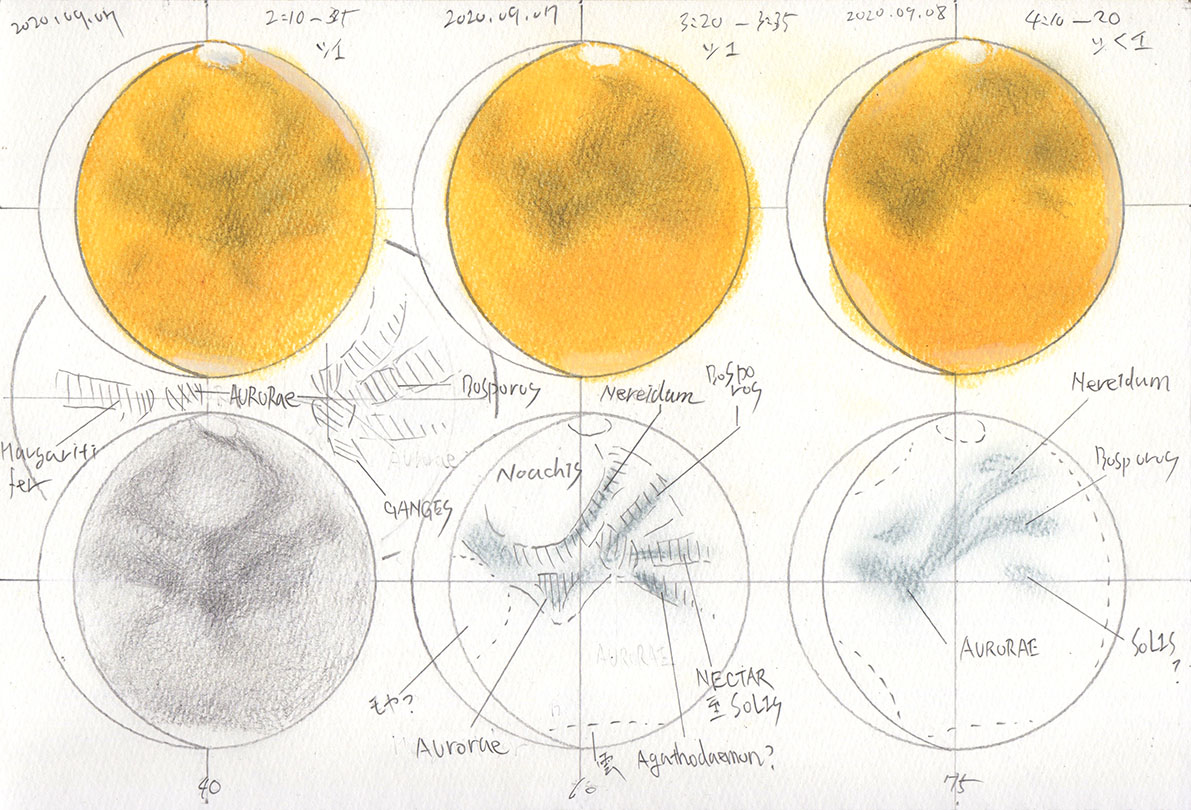 2020.09.07
2:10 — 35
ツ1
2020.09.07
3:20 — 3:35
ツ1
2020.09.08
4:10 — 20
ツ<1
AURORAE
Bosporus
Margariti
fer
GANGES
Noachis
Nereidum
Bospo
ros
モヤ?
Aurorae
雲
Agathodaemon?
NECTAR
SOLIS
AURORAE
Nereidum
Bosporus
AURORAE
SOLIS
?
40
60
75